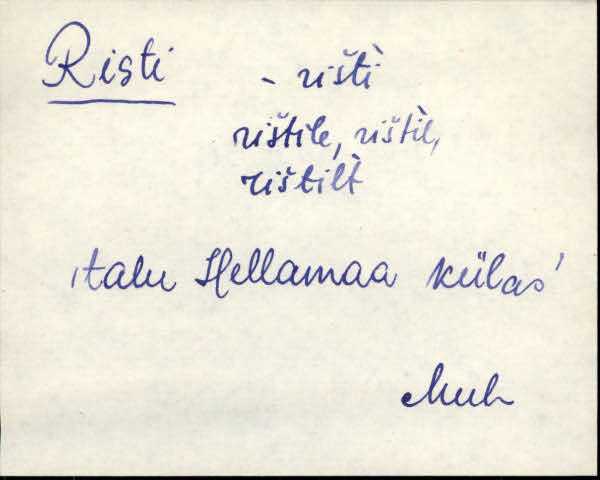 Risti - rišti
rištile, rištil,
rištilt
'talu Hellamaa külas'
Muh